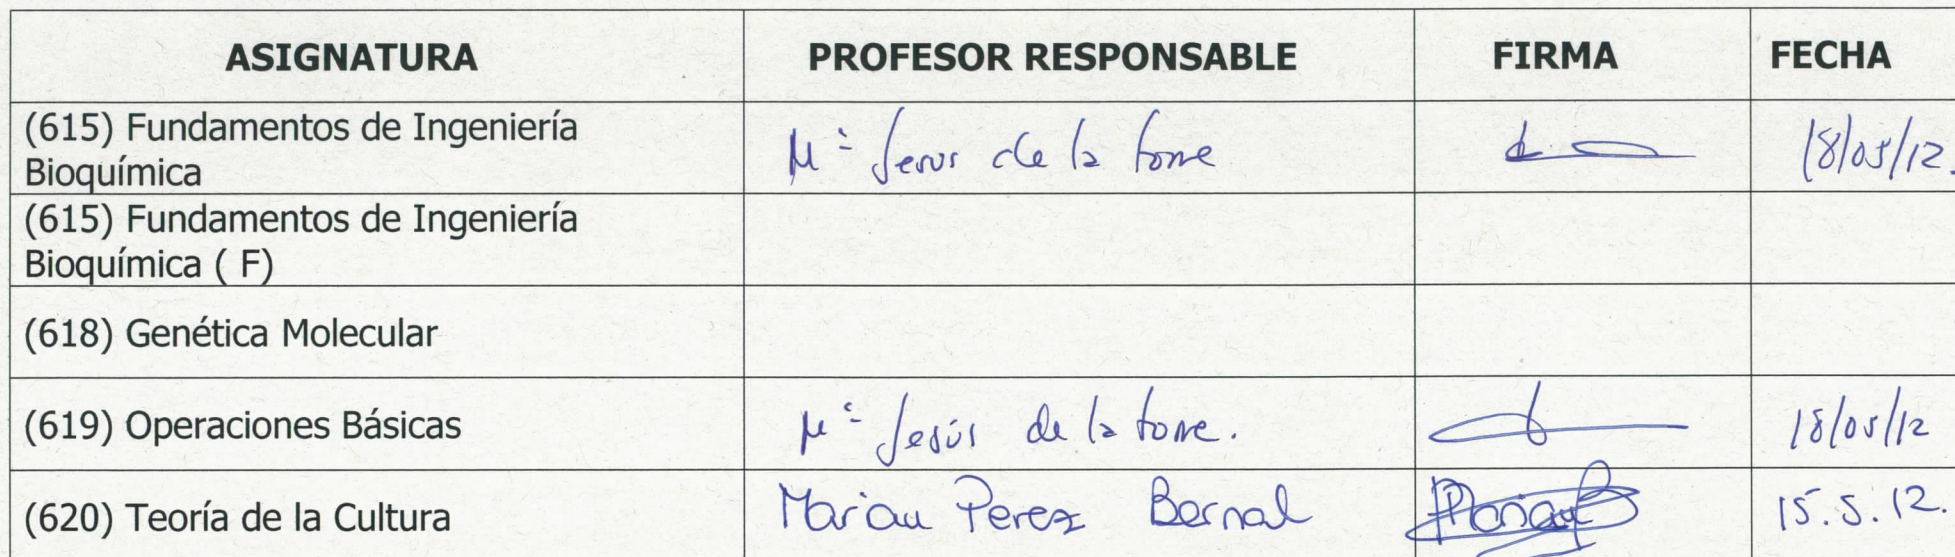 ASIGNATURA PROFESOR RESPONSABLE FIRMA FECHA
(615) Fundamentos de Ingeniería
Bioquímica
Mª Jesus de la torre 18/05/12.
(615) Fundamentos de Ingeniería
Bioquímica ( F)
(618) Genética Molecular
(619) Operaciones Básicas Mª Jesús de la torre. 18/05/12
(620) Teoría de la Cultura Marian Perez Bernal 15.5.12.